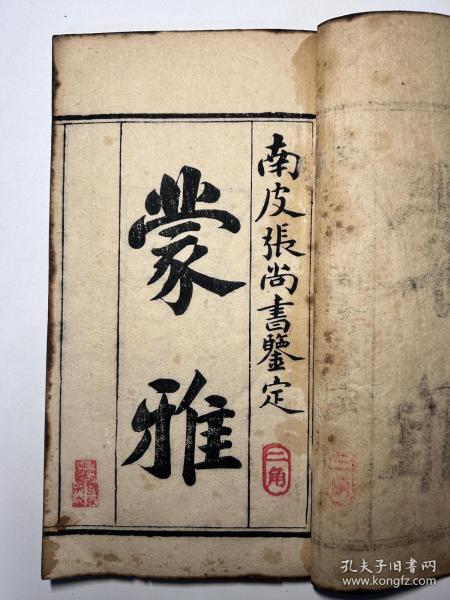 南皮張尚書鑒定
二角
蒙雅
孔夫子旧书网
www.kongfz.com